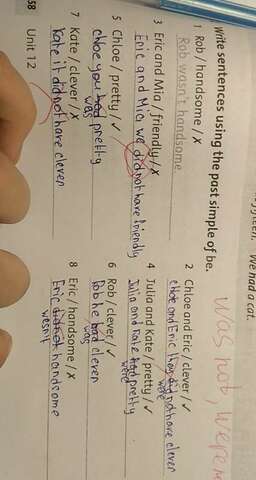 We had a cat.
was not, were n
Write sentences using the past simple of be.
1 Rob / handsome / X
Rob wasn't handsome
2 Chloe and Eric / clever / ✓
chloe and Eric they did not have cleven
were
3 Eric and Mia / friendly / X
Eric and Mia we did not have friendly
4 Julia and Kate / pretty / ✓
Julia and Kate had pretty
were
5 Chloe / pretty / ✓
chloe you had pretty
was
6 Rob / clever / ✓
Rob he had cleven
was
7 Kate / clever / X
Kate it did not have cleven
8 Eric / handsome / X
Eric did not handsome
wesn't
58 Unit 12